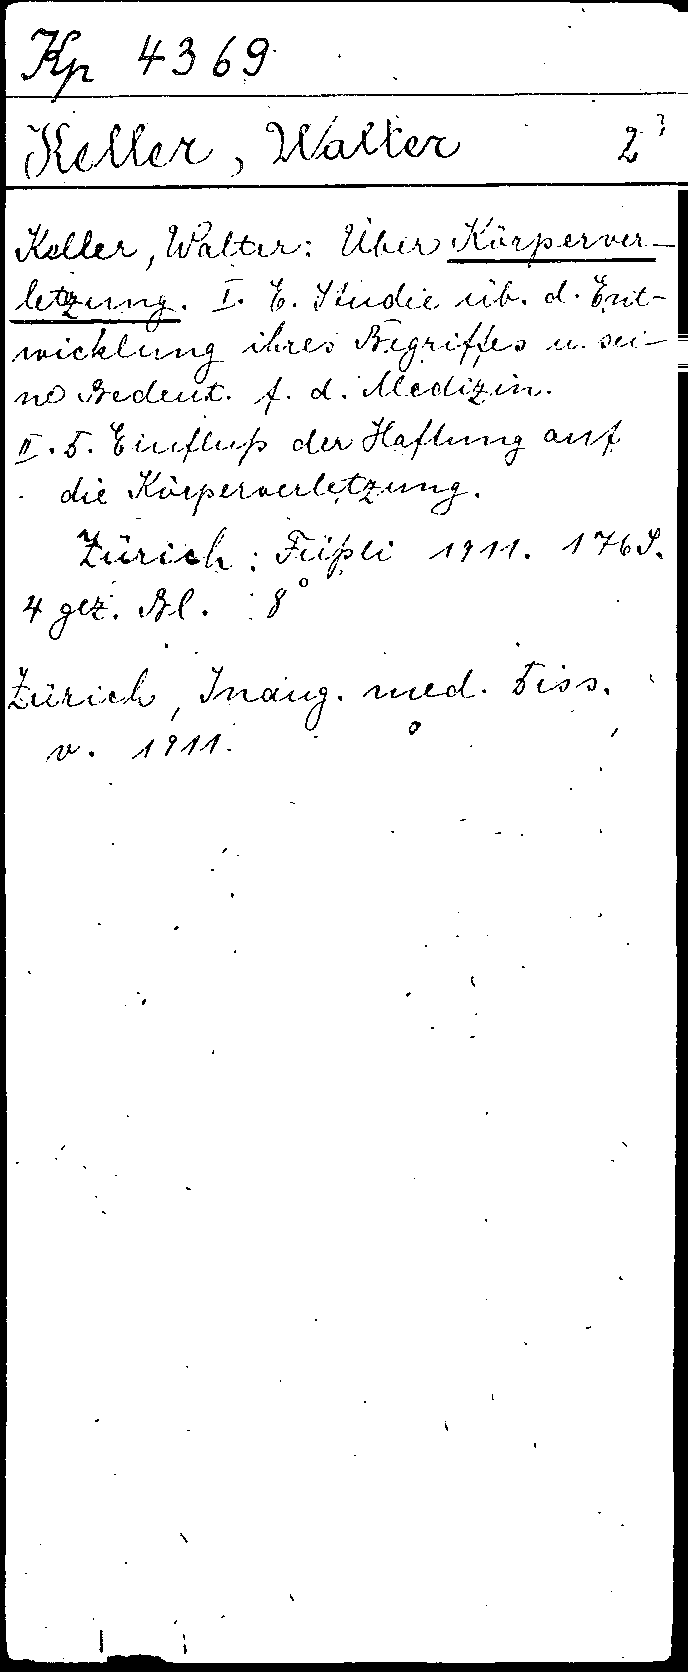 Kp 4369
Keller, Walter 2³
Keller, Walter: Über Körperver-
letzung. I. E. Studie üb. d. Ent-
wicklung ihres Begriffes u. sei-
ne Bedeut. f. d. Medizin.
II. D. Einfluß der Haftung auf
die Körperverletzung.
Zürich: Füßli 1911. 176 S.
4 gez. Bl. 8°
Zürich, Inaug. med. Diss.
v. 1911.